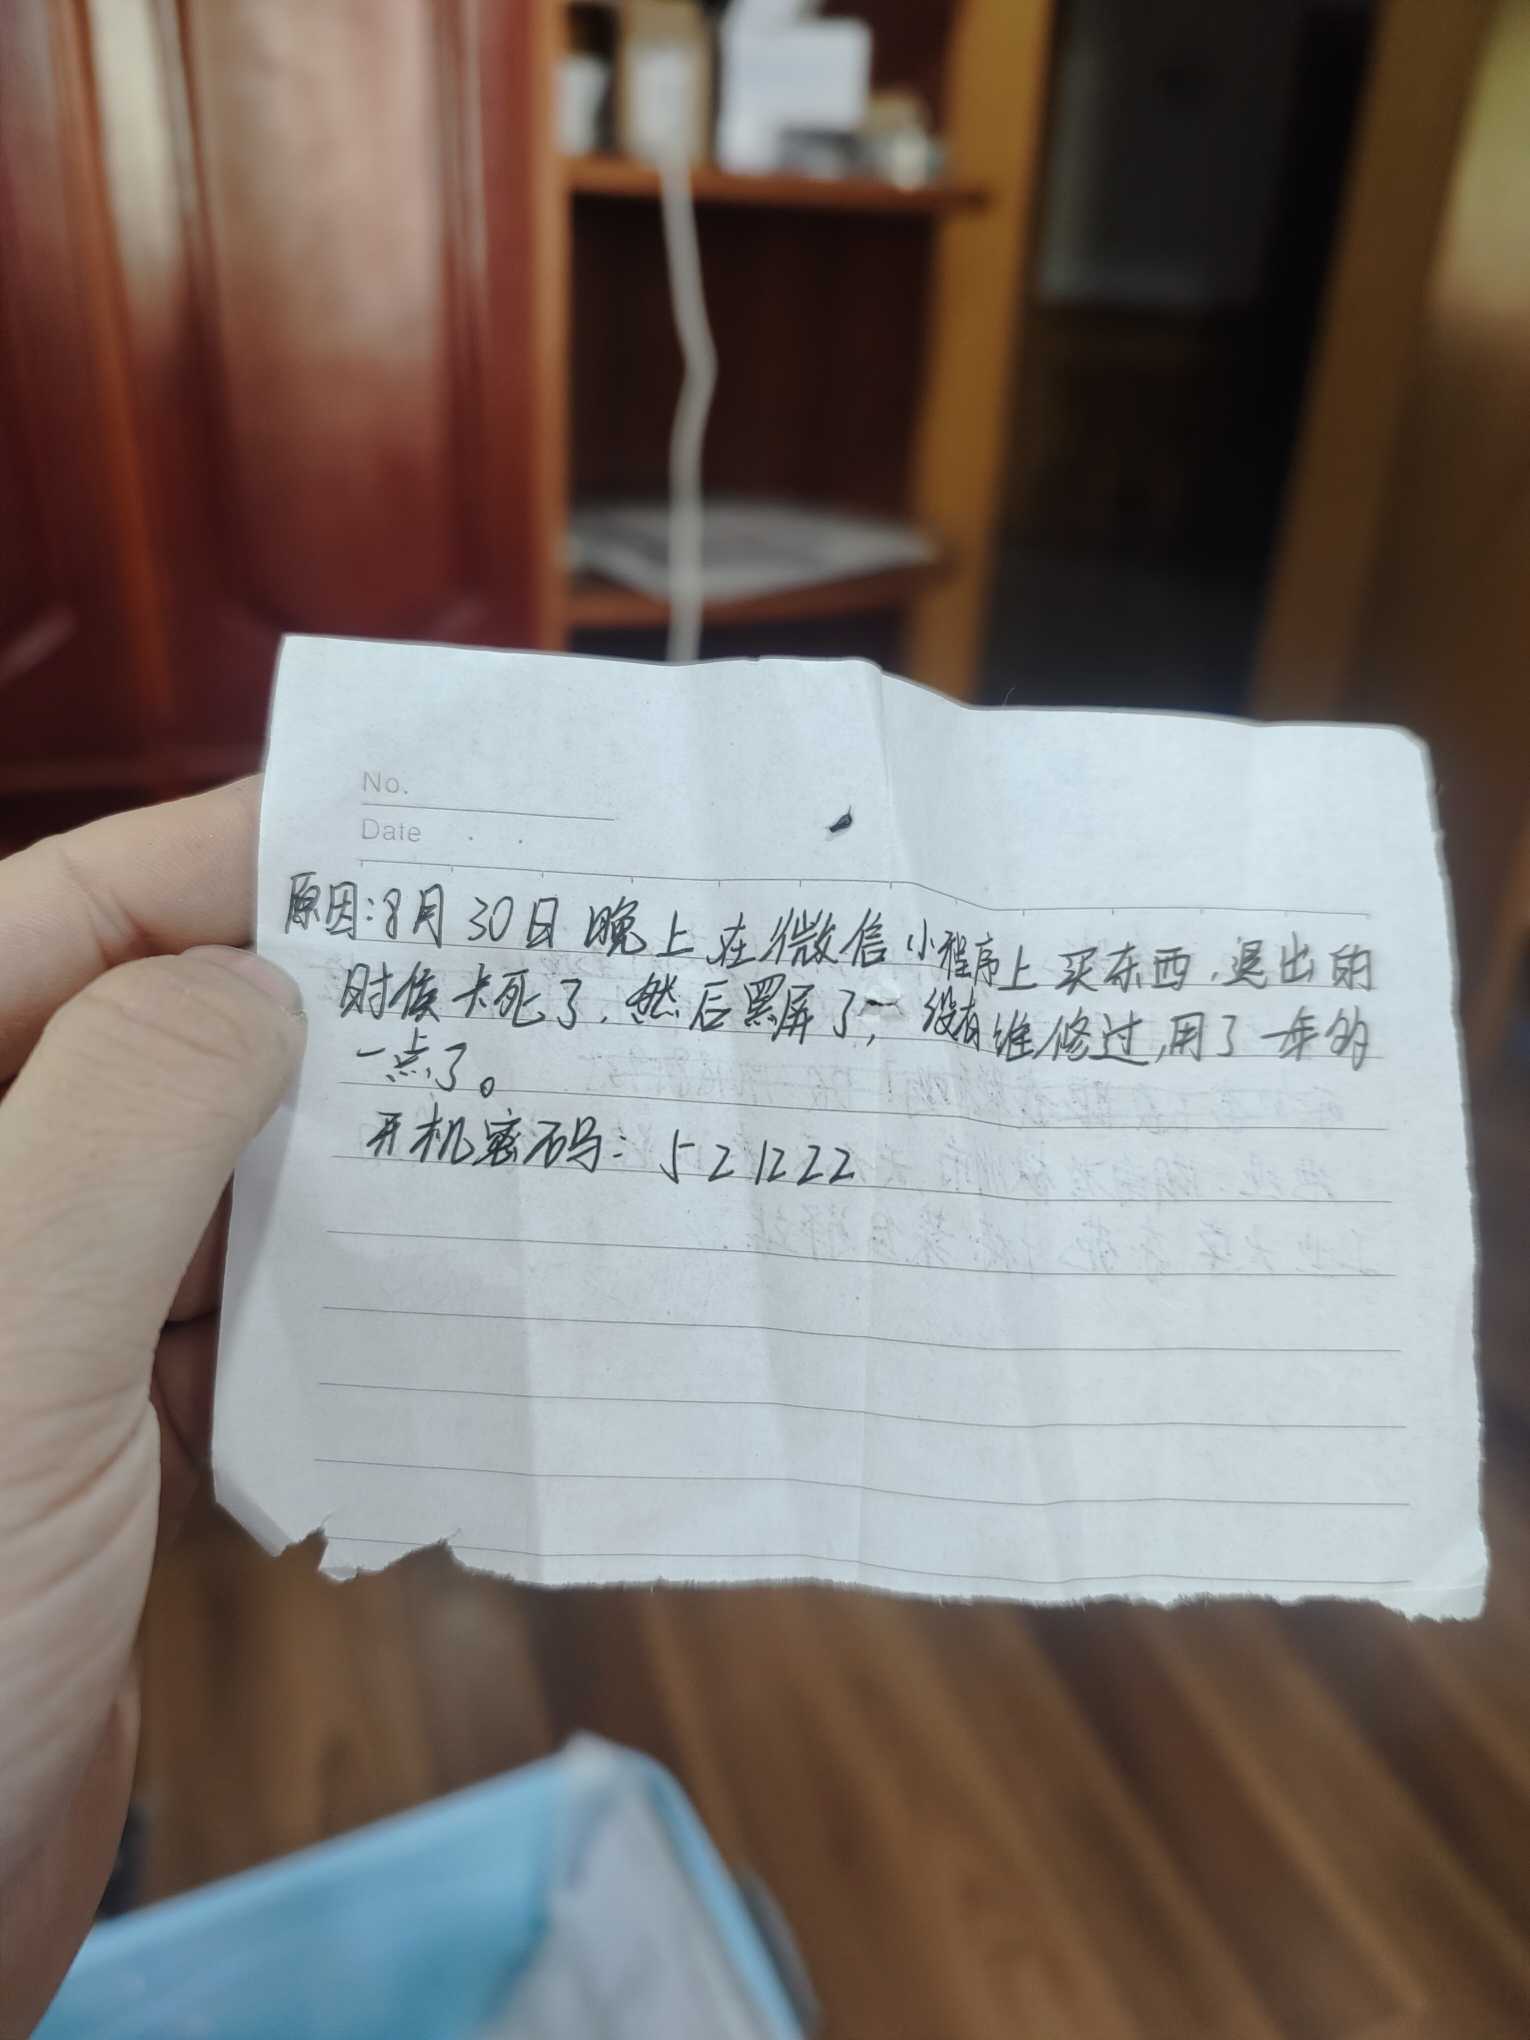 No.
Date
原因:8月30日晚上在微信小程序上买东西,退出的
时候卡死了,然后黑屏了,没有维修过,用了一年的
一点了。
开机密码:521222